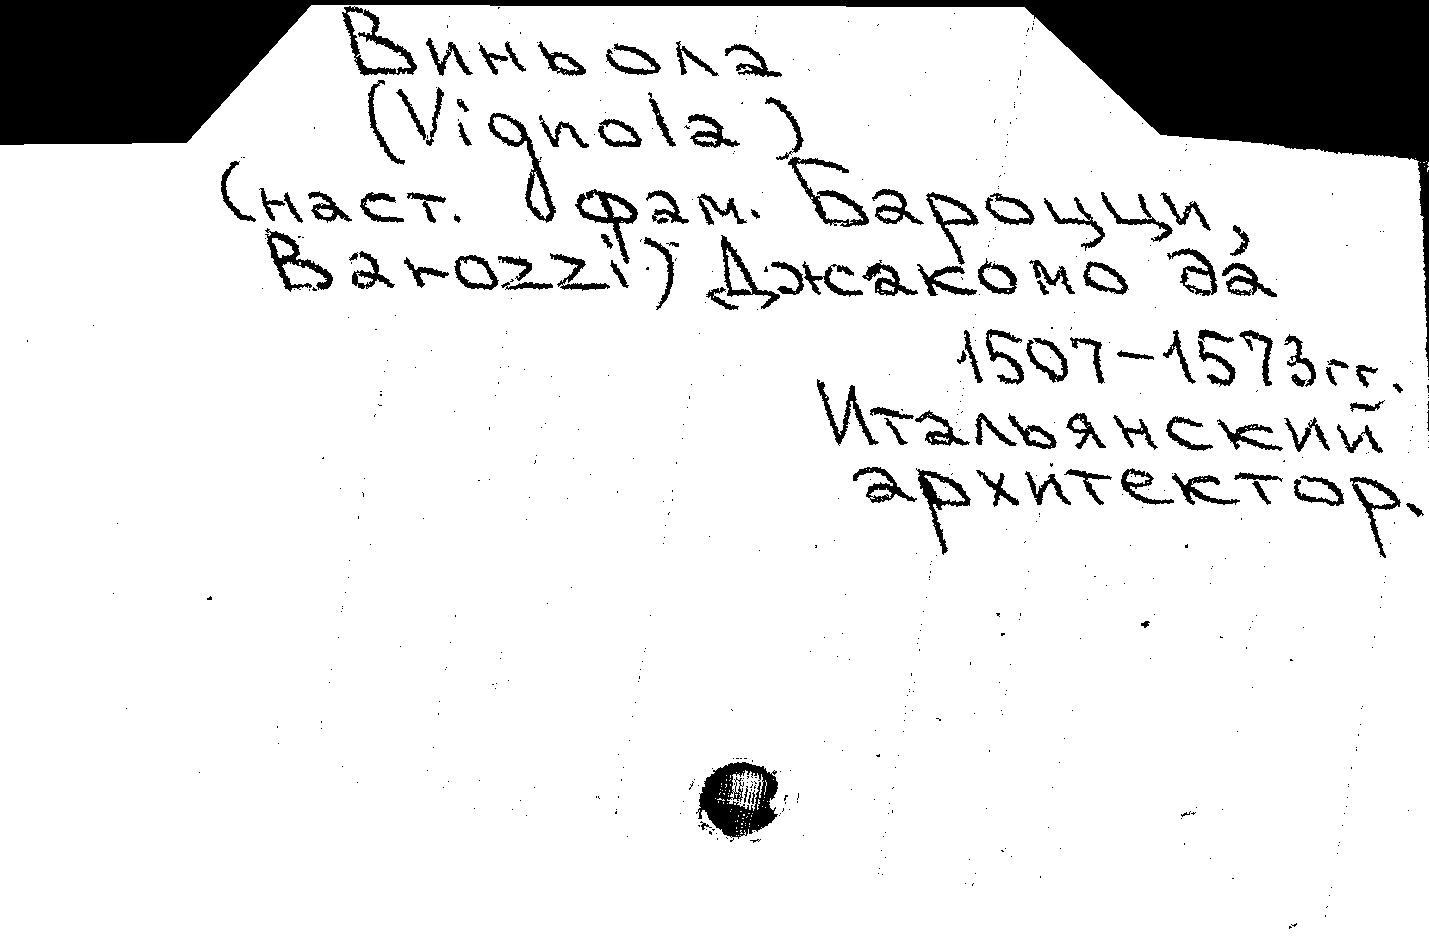 Виньола
(Vignola)
(наст. фам. Бароцци,
Barozzi) Джакомо да
1507-1573гг.
Итальянский
архитектор.